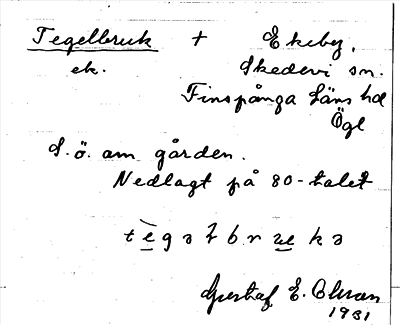 Tegelbruk + Ekeby,
ek. Skedevi sn.
Finspånga läns hd
Ögl
S.ö. om gården.
Nedlagt på 80-talet
Gustaf E. Olsson
1931